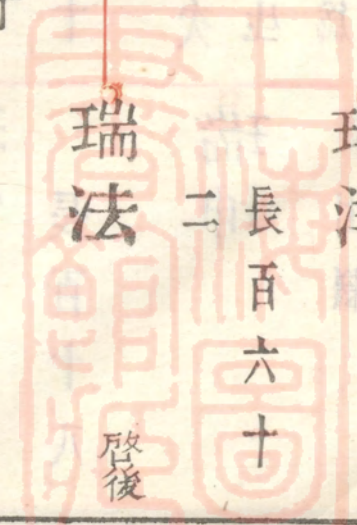 長百六十
二
瑞法
啓後